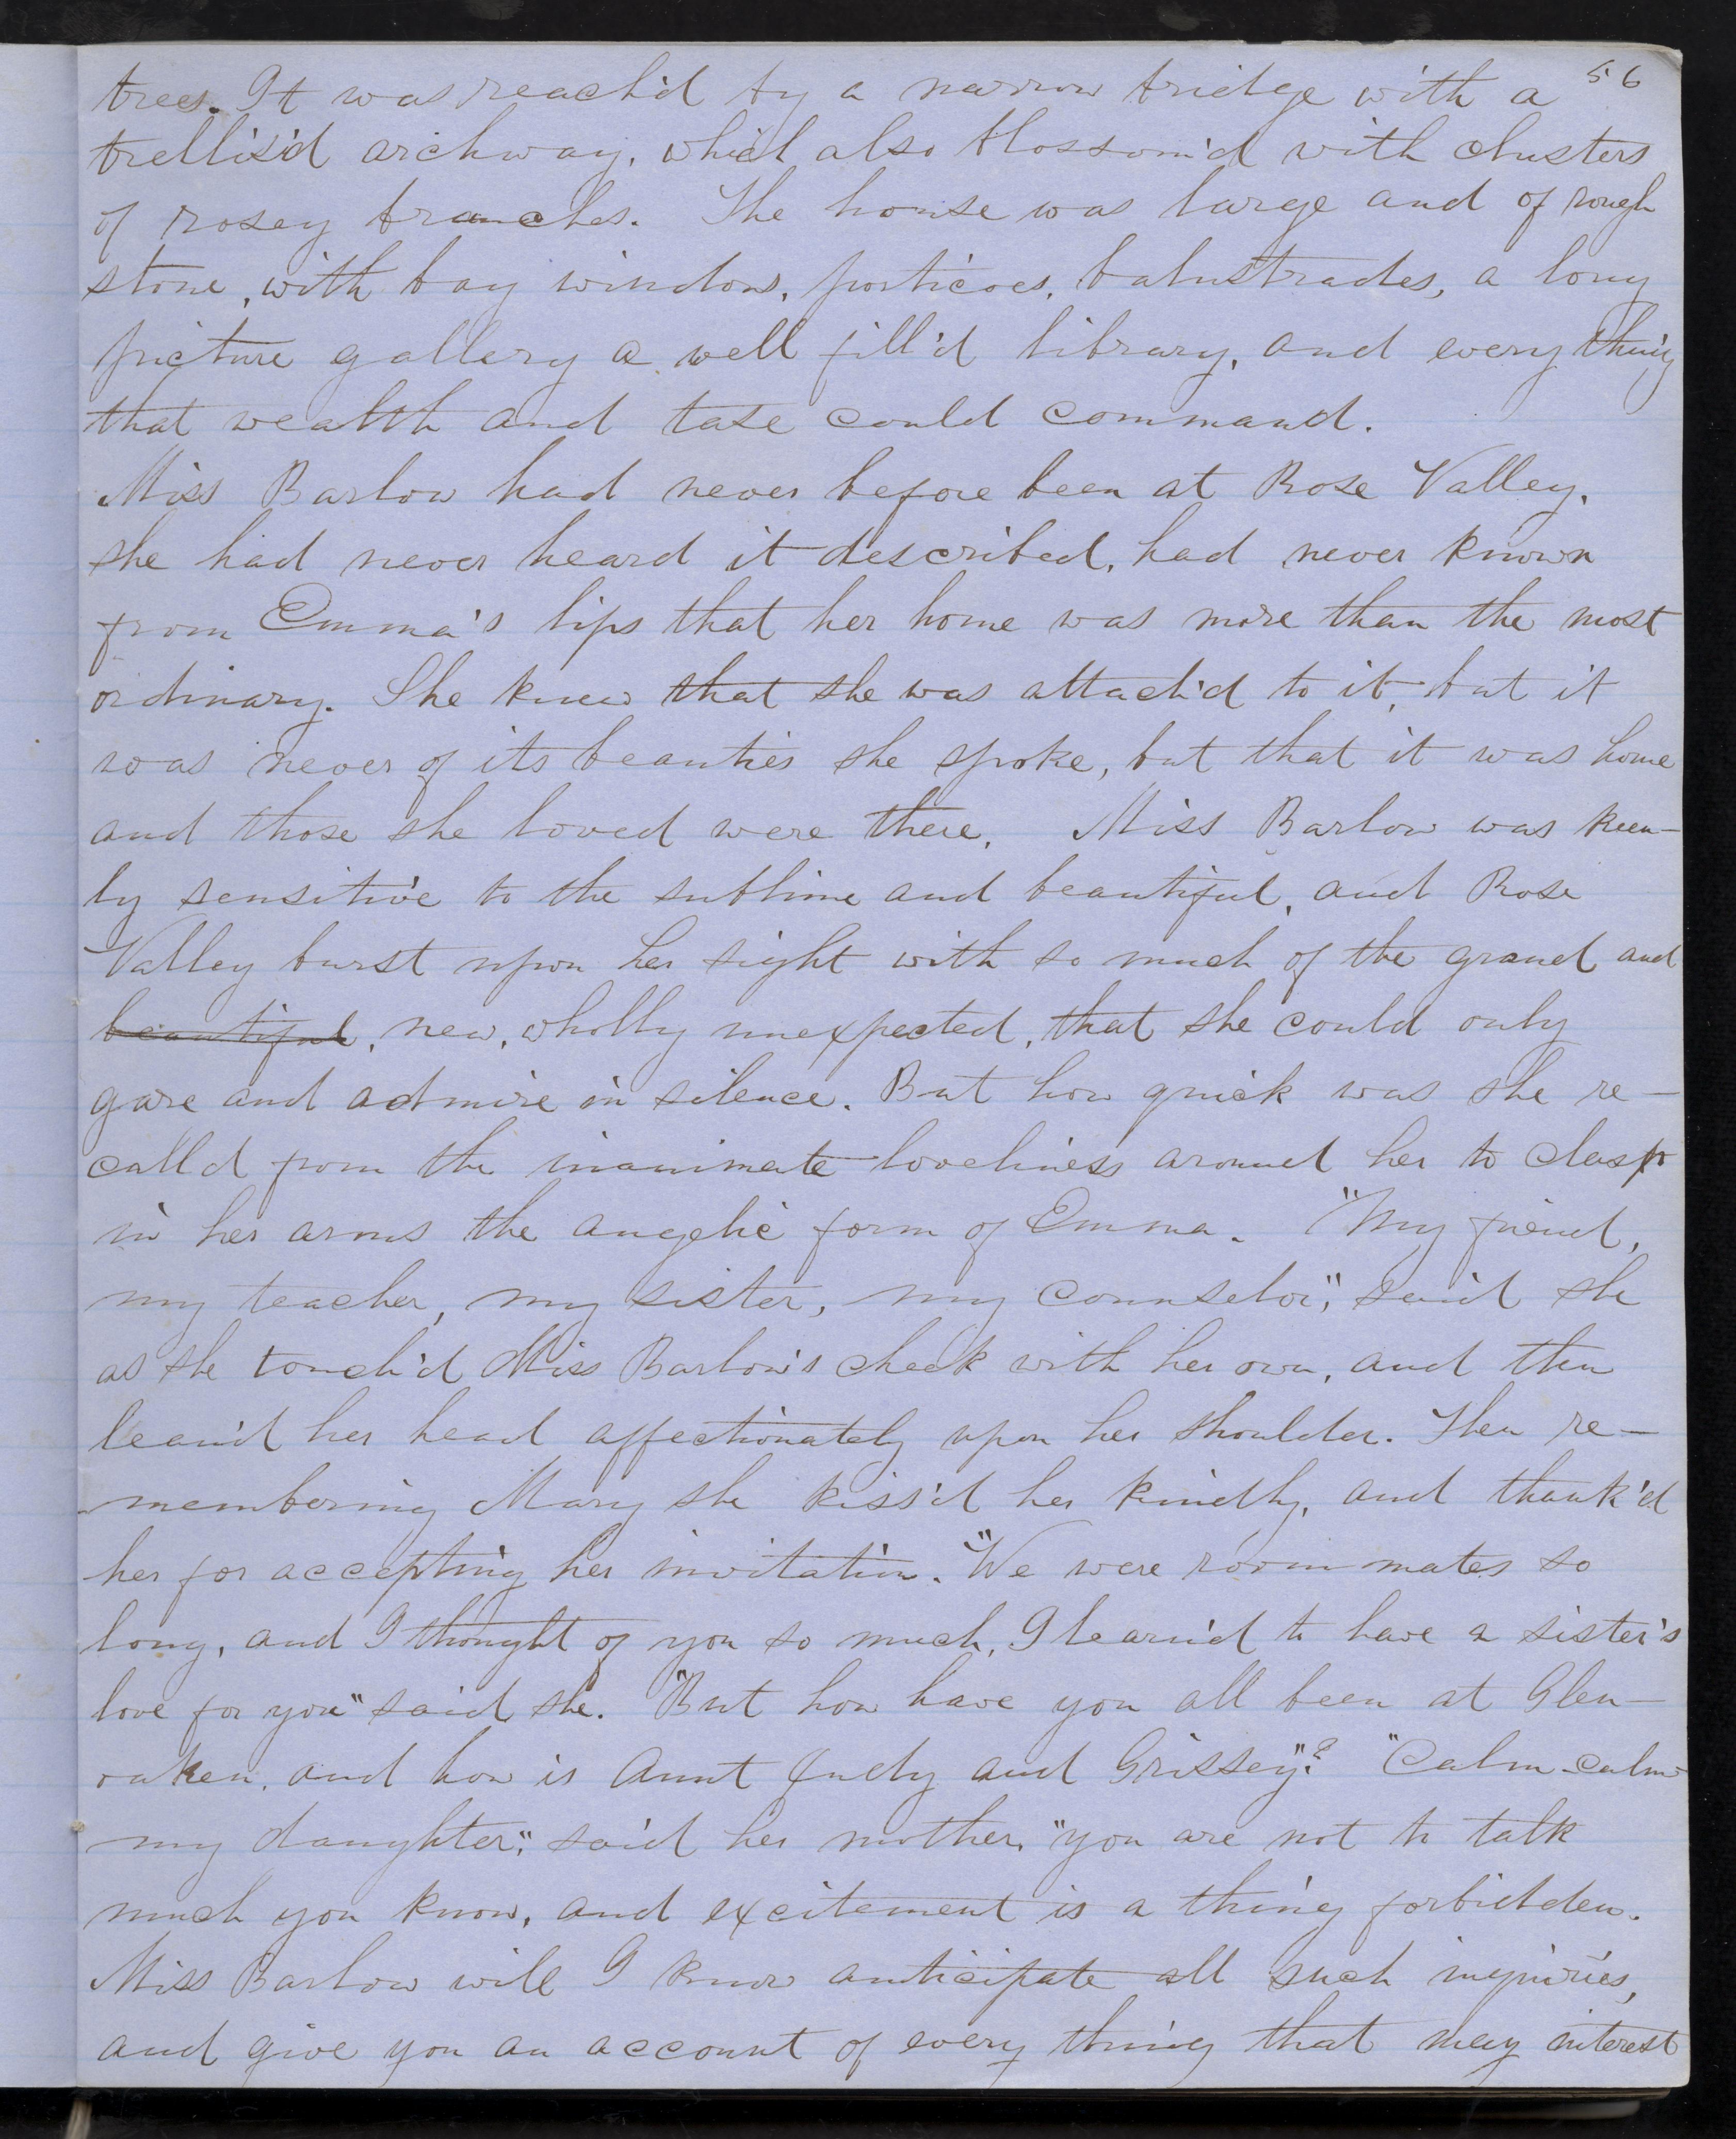 56
trees. It was reach'd by a narrow bridge with a
trellis'd archway, which also blossom'd with clusters
of rosey branches. The house was large and of rough
stone, with bay windows, porticoes, balustrades, a long
picture gallery a well fill'd library, and every thing
that wealth and tase could command.
Miss Barlow had never before been at Rose Valley,
she had never heard it described, had never known
from Emma's lips that her home was more than the most
ordinary. She knew that she was attach'd to it, but it
was never of its beauties she spoke, but that it was home
and those she loved were there. Miss Barlow was keen-
ly sensitive to the sublime and beautiful, and Rose
Valley burst upon her sight with so much of the grand and
beautiful, new, wholly unexpected, that she could only
gaze and admire in silence. But how quick was she re-
call'd from the inanimate loveliness around her to clasp
in her arms the angelic form of Emma. "My friend,
my teacher, my sister, my counselor," said she
as she touch'd Miss Barlow's cheek with her own, and then
lean'd her head affectionately upon her shoulder. Then re-
membering Mary she kiss'd her kindly, and thank'd
her for accepting her invitation. "We were room mates so
long, and I thought of you so much, I learn'd to have a sister's
love for you" said she. "But how have you all been at Glen-
oaken, and how is Aunt Judy and Grissey"? "Calm-calm-
my daughter," said her mother, "you are not to talk
much you know, and excitement is a thing forbidden.
Miss Barlow will I know anticipate all such inquiries,
and give you an account of every thing that may interest